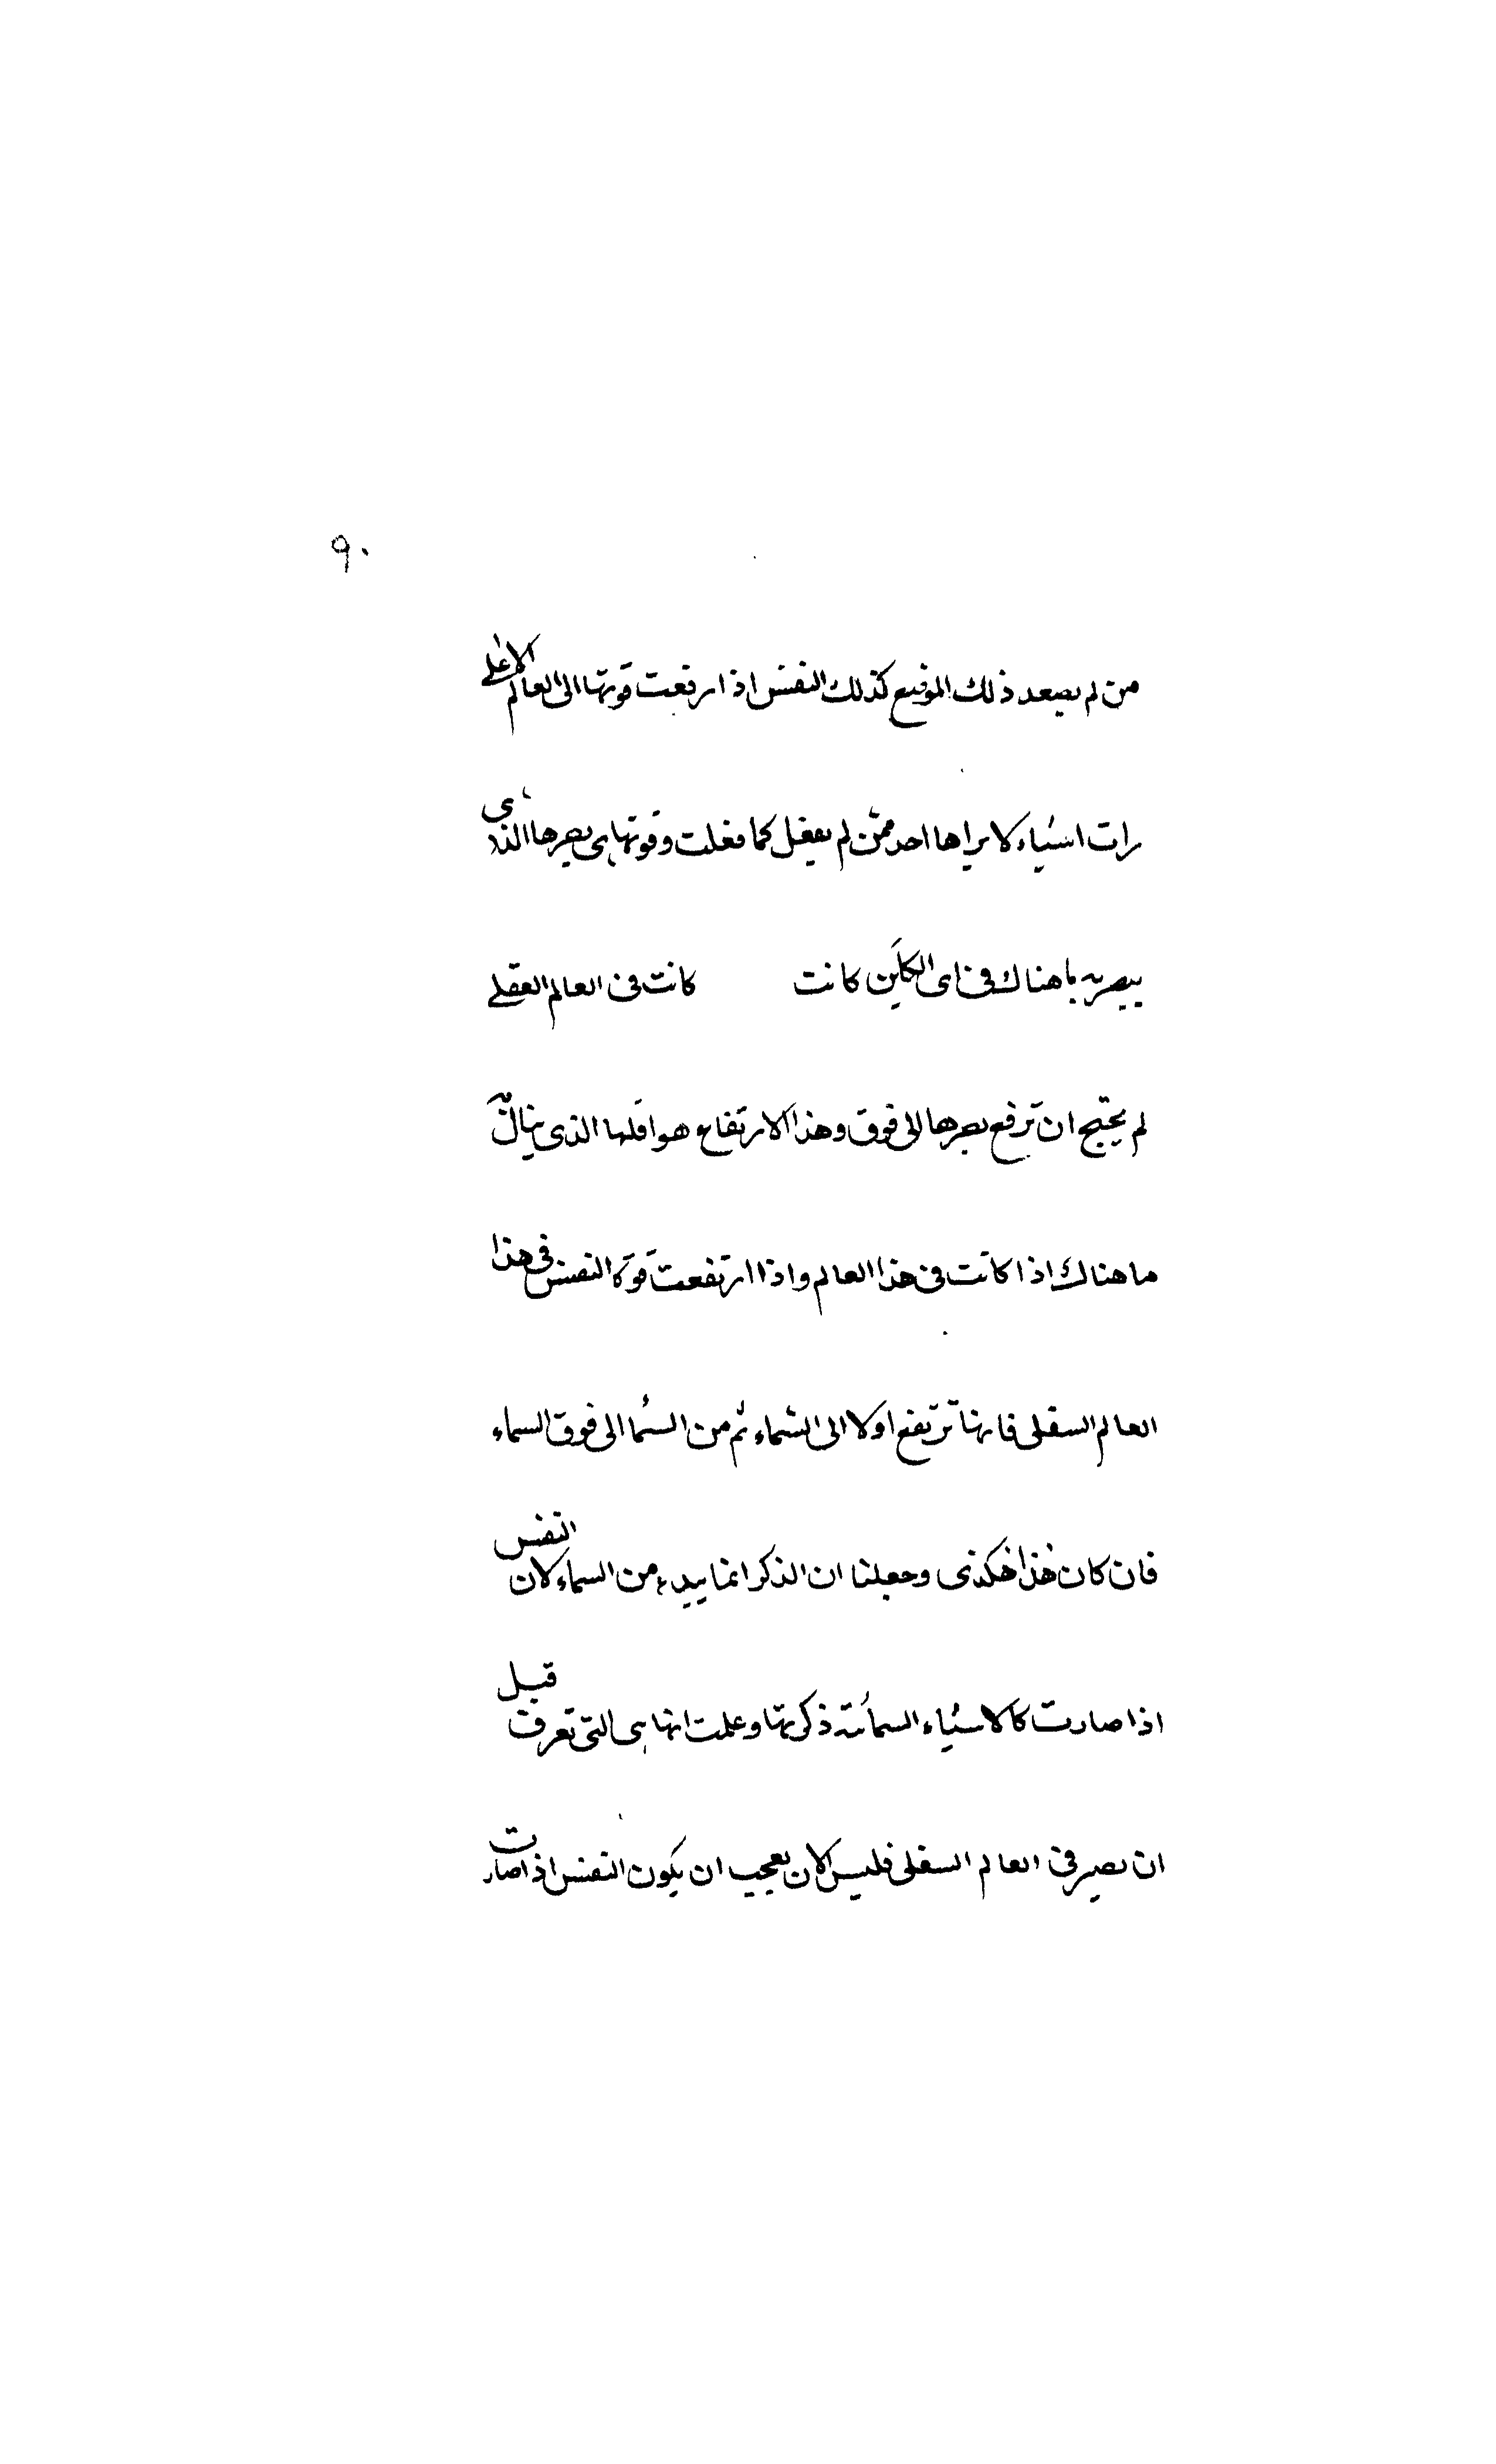 ٩٠
من لم يصعد ذلك الموضع كذلك النفس اذا رفعت قوتها الى العالم الاعلى
رات اشياء لا يراها احد ممن لم يفعل كما فعلت وقوتها هى بصرها الذى
يبصر به ما هناك فى اى كانت كانت فى العالم العقلى
لم يحتج ان ترفع بصرها الى فوق وهذا الارتفاع هو الذى ينال
ما هناك اذا كانت فى هذا العالم واذا ارتفعت قوة النفس فى هذا
العالم السفلى فانها ترتفع اولا الى السماء ثم من السما الى فوق السماء
فان كان هذا هكذى وجعلنا ان الذكر انما يبدء من السماء لان النفس
اذا صارت كالاشياء السمائية ذكرتها وعلمت انها هى التى تعرف قبل
ان يصير فى العالم السفلى فليس الان بعجيب ان يكون النفس اذا صارت